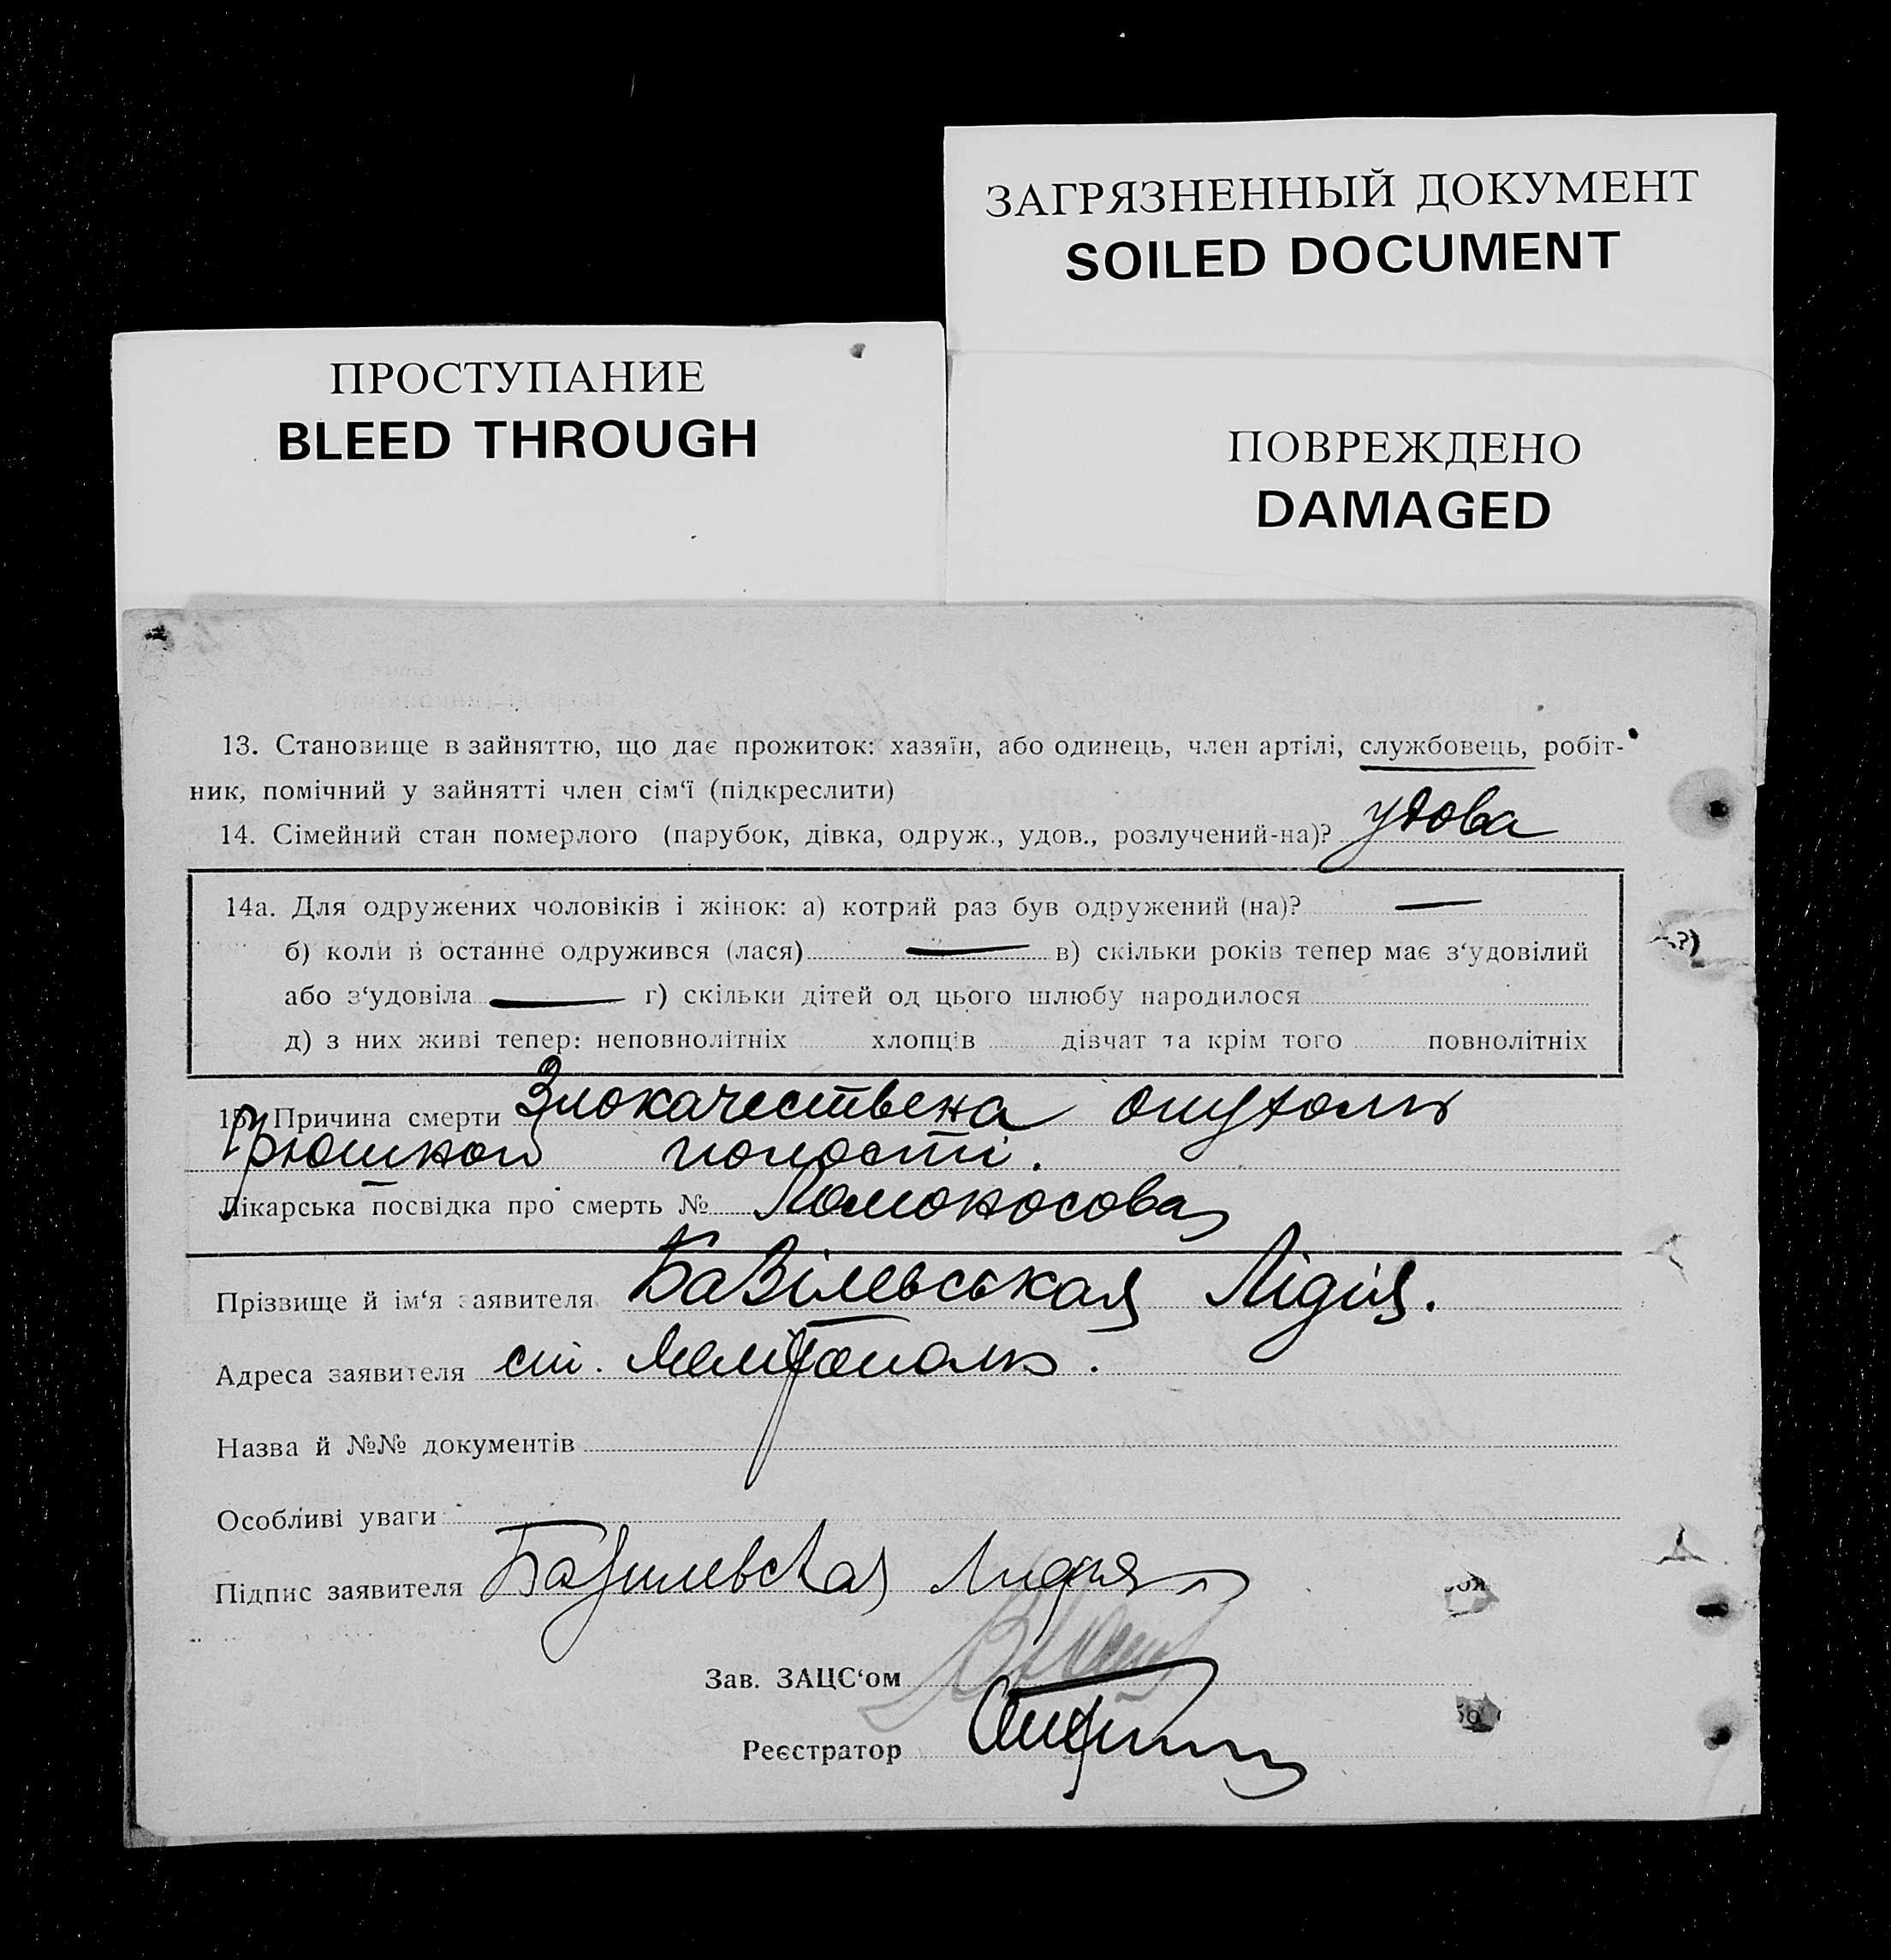 ЗАГРЯЗНЕННЫЙ ДОКУМЕНТ
SOILED DOCUMENT
ПРОСТУПАНИЕ
BLEED THROUGH
ПОВРЕЖДЕНО
DAMAGED
13. Становище в зайняттю, що дає прожиток: хазяїн, або одинець, член артілі, службовець, робіт-
ник, помічний у зайнятті член сім‘ї (підкреслити)
14. Сімейний стан померлого (парубок, дівка, одруж., удов., розлучений-на)? удова
14а. Для одружених чоловіків і жінок: а) котрий раз був одружений (на)? —
б) коли в останнє одружився (лася) — в) скільки років тепер має з‘удовілий
або з‘удовіла — г) скільки дітей од цього шлюбу народилося
д) з них живі тепер: неповнолітніх хлопців дівчат та крім того повнолітніх
15. Причина смерти Злокачествена опухоль
брюшной полості.
Лікарська посвідка про смерть № Ломоносова
Прізвище й ім‘я заявителя Базілевськая Лідія.
Адреса заявителя ст. Мелітополь.
Назва й №№ документів
Особливі уваги
Підпис заявителя Базилевская Лидия
Зав. ЗАЦС‘ом
Реєстратор